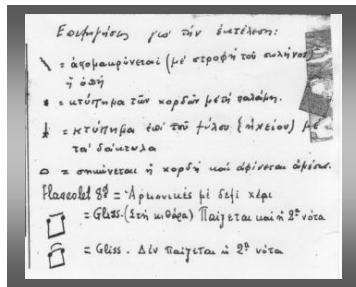 Ἐπεξηγήσεις γιά τήν ἐκτέλεση:
= ἀπομακρύνεται (μέ στροφή τοῦ σωλῆνος)
ἤ ὀπή
= κτύπημα τῶν χορδῶν μέ τή παλάμη.
= κτύπημα ἐπί τοῦ ξύλου (ἠχείου) μέ
τά δάκτυλα
= σηκώνεται ἡ χορδή καί ἀφίνεται ἀμέσως.
Flageolet 8ª = Ἁρμονικές μέ δεξί χέρι
= Gliss. (Στή κιθάρα) Παίζεται καί ἡ 2ª νότα
= Gliss. Δέν παίζεται ἡ 2ª νότα